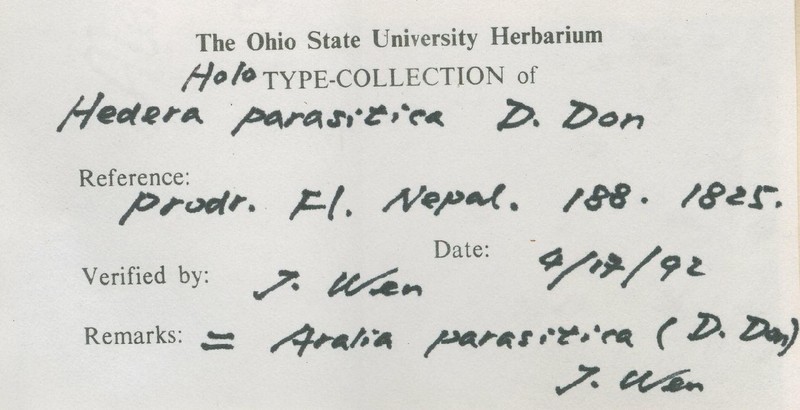 The Ohio State University Herbarium
Holo TYPE-COLLECTION of
Hedera parasitica D. Don
Reference:
Prodr. Fl. Nepal. 188. 1825.
Date: 4/17/92
Verified by: J. Wen
Remarks: = Aralia parasitica (D. Don)
J. Wen